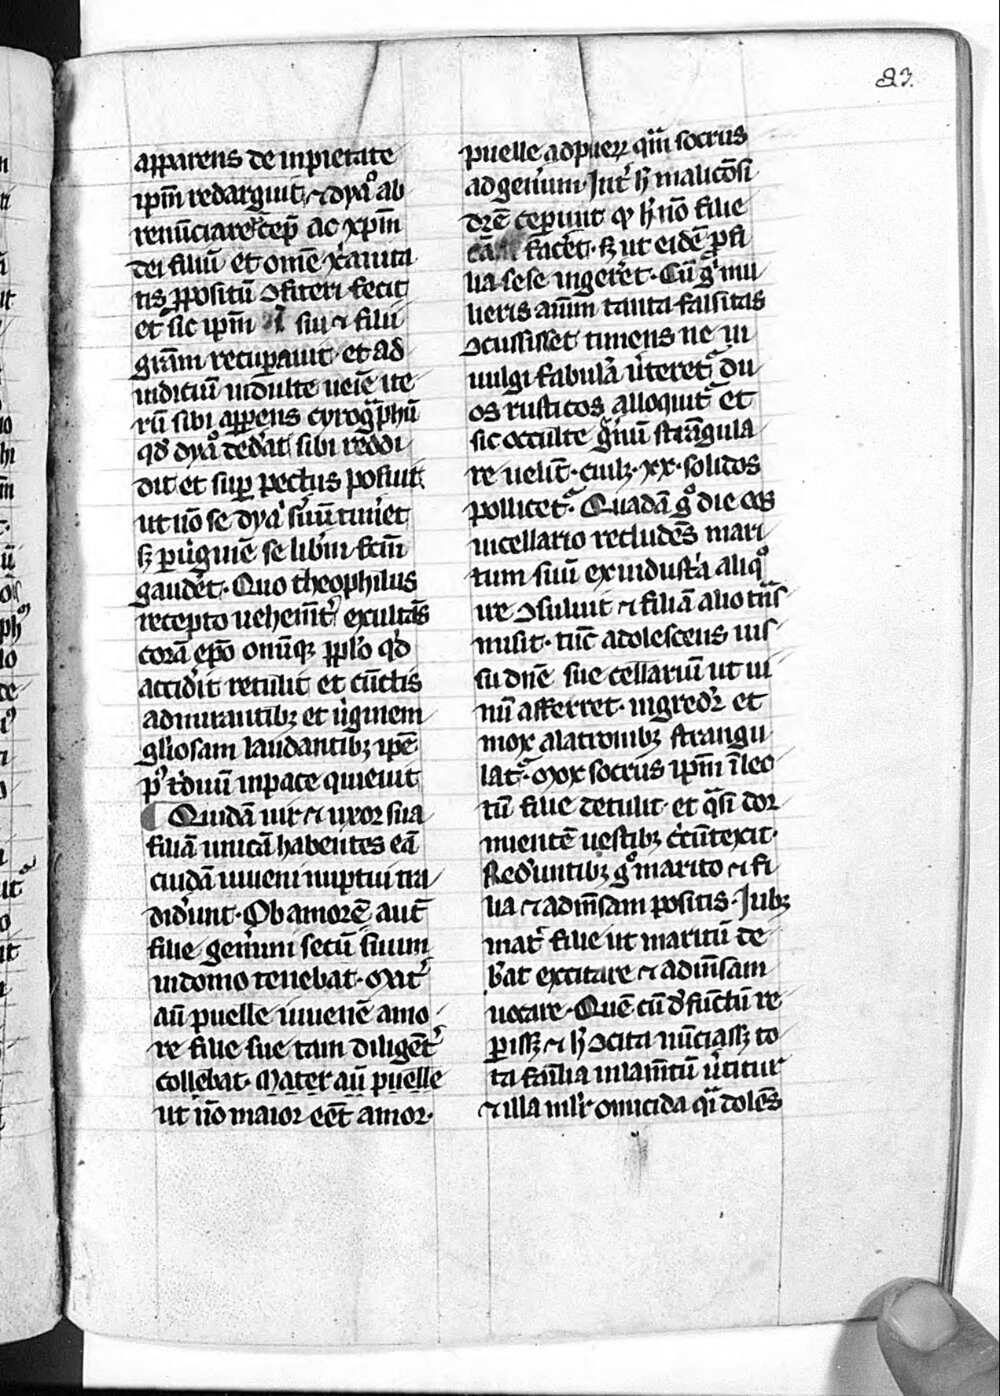 83.
apparens de inpietate
ipm̄ redarguit, ⁊ dyao ab
renūciare cep̄ ac xpm̄
dei filiū et om̄e xp̄ianita
tis ꝓpositū ↄfiteri fecit
et sic ipm̄ siu ⁊ filii
grām recupauit et ad
indiciū indulte ueīe ite
rū sibi appens cyrogphū
qd̄ dyao dedat sibi reddi
dit et sup pectus posuit
ut nō se dyao suū timet
sꝫ p uigīnē se libm̄ fcm̄
gaudet. Quo theophilus
recepto uehemt̄ exultās
corā ep̄o omīqꝫ pplo qd̄
accidit retulit et cūctis
admirantibꝫ et uiginem
gliosam laudantibꝫ ipē
pꝰ tduū inpace quieuit
Quidā uir ⁊ uxor sua
filiā unicā habentes eā
cuidā iuueni nuptui tra
didunt. Ob amorē aut̄
filie gen̄um secū simm
indomo tenebat. Mat̄
aū puelle iuuenē amo
re filie sue tam diligēt̄
collebat. Mater aū puelle
ut nō maior eēt amor.
puelle ad puerꝝ qm̄ socrus
ad gen̄um. Int̄ h̄ malicōsi
dr̄e ceperunt ꝙ h̄ nō filie
cā facēt. sꝫ ut eidē ꝓ fi
lia sese ingeret. Cū gͦ mu
lieris aīm tanta falsitas
ↄcussisset timens ne in
uulgi fabulā ūteret̄ du
os rusticos alloquit̄ et
sic occulte gn̄uū strāgula
re uelīt. cuilꝫ .xx. solidos
pollicet̄. Quadā gͦ die eos
incellario recludēs mari
tum suū ex industia aliqͦ
ire ↄsuluit ⁊ filiā alio tn̄s
misit. tūc adolescens ius
su dn̄e sue cellariū ut ui
nū afferret. ingredr̄ et
mox alatronibꝫ strangu
lat̄. Mox socrus ipm̄ ī leo
tū filie detulit. et qsi dor
mientē uestibꝫ c̄cūtexit.
Redeuntibꝫ gͦ marito ⁊ fi
lia ⁊ admsam positis. Jubꝫ
mat̄ filie ut maritū de
beat excitare ⁊ admsam
uocare. Quē cū dfūctū re
pissꝫ ⁊ h̄ ↄcita nūciassꝫ to
ta familia inlamtū utitur
⁊ illa mulr̄ omicida qsi dolēs